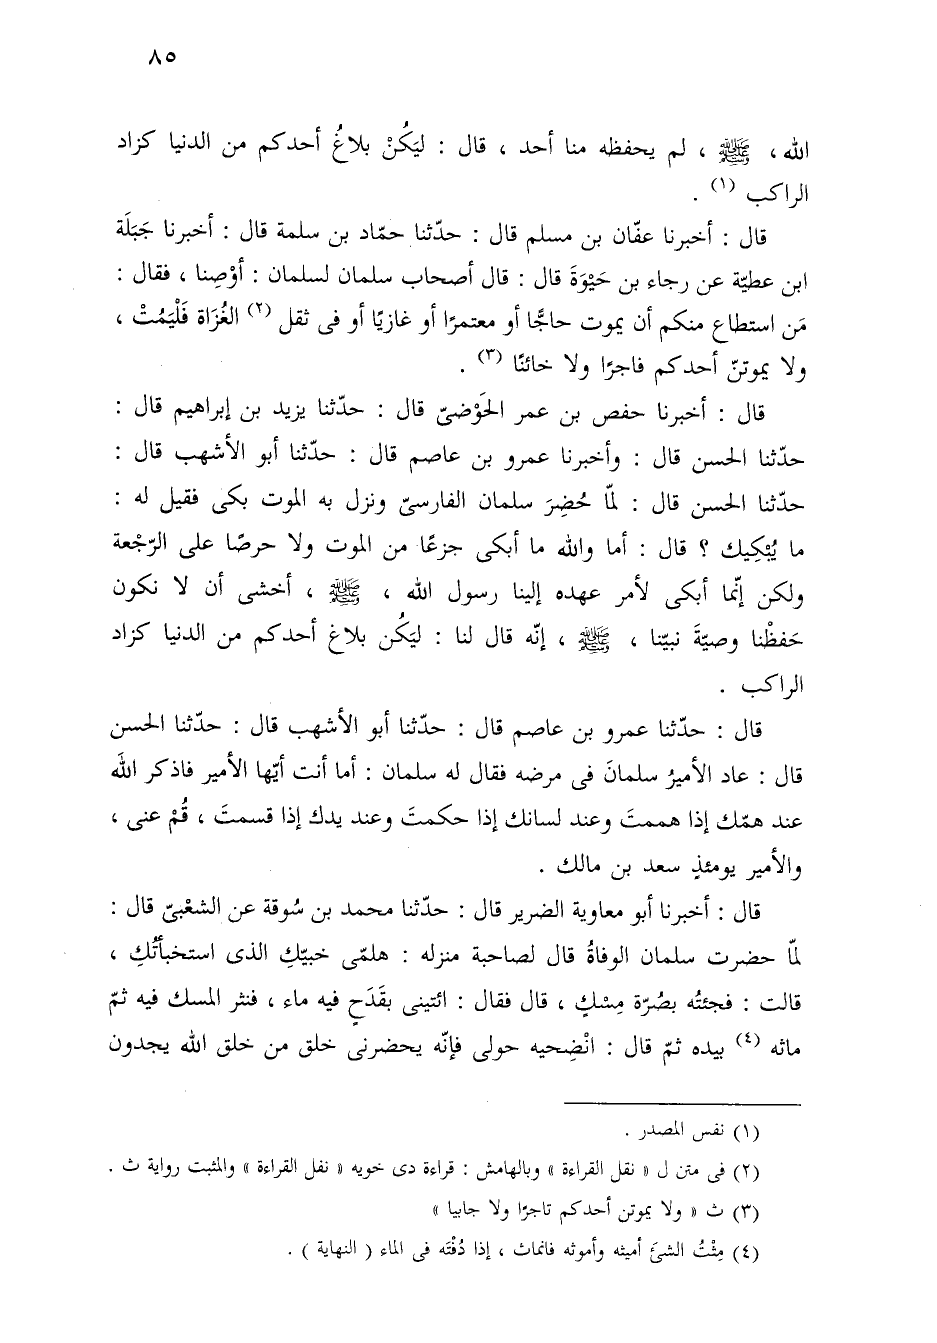 ٨٥
الله ، ﷺ ، لم يحفظه منا أحد ، قال : ليَكُنْ بلاغُ أحدكم من الدنيا كزاد
الراكب (١) .
قال : أخبرنا عفّان بن مسلم قال : حدّثنا حمّاد بن سلمة قال : أخبرنا جَبَلَة
ابن عطيّة عن رجاء بن حَيْوَةَ قال : قال أصحاب سلمان لسلمان : أوْصِنا ، فقال :
مَن استطاع منكم أن يموت حاجًّا أو معتمرًا أو غازيًا أو فى ثقل (٢) الغُزَاة فَلْيَمُتْ ،
ولا يموتنّ أحدكم فاجرًا ولا خائنًا (٣) .
قال : أخبرنا حفص بن عمر الحَوْضىّ قال : حدّثنا يزيد بن إبراهيم قال :
حدّثنا الحسن قال : وأخبرنا عمرو بن عاصم قال : حدّثنا أبو الأشهب قال :
حدّثنا الحسن قال : لمّا حُضِرَ سلمان الفارسىّ ونزل به الموت بكى فقيل له :
ما يُبْكِيك ؟ قال : أما والله ما أبكى جزعًا من الموت ولا حرصًا على الرّجْعة
ولكن إنّما أبكى لأمر عهده إلينا رسول الله ، ﷺ ، أخشى أن لا نكون
حَفظْنا وصيّةَ نبيّنا ، ﷺ ، إنّه قال لنا : ليَكُن بلاغ أحدكم من الدنيا كزاد
الراكب .
قال : حدّثنا عمرو بن عاصم قال : حدّثنا أبو الأشهب قال : حدّثنا الحسن
قال : عاد الأميرُ سلمانَ فى مرضه فقال له سلمان : أما أنت أيّها الأمير فاذكر اللهَ
عند همّك إذا هممتَ وعند لسانك إذا حكمتَ وعند يدك إذا قسمتَ ، قُمْ عنى ،
والأمير يومئذٍ سعد بن مالك .
قال : أخبرنا أبو معاوية الضرير قال : حدّثنا محمد بن سُوقة عن الشعْبىّ قال :
لمّا حضرت سلمان الوفاةُ قال لصاحبة منزله : هلمّى خبيّكِ الذى استخبأتُكِ ،
قالت : فجئتُه بصُرّة مِسْكٍ ، قال فقال : ائتينى بقَدَحٍ فيه ماء ، فنثر المسك فيه ثمّ
ماثه (٤) بيده ثمّ قال : انْضِحيه حولى فإنّه يحضرنى خلق من خلق الله يجدون
(١) نفس المصدر .
(٢) فى متن ل « نقل القراءة » وبالهامش : قراءة دى خويه « نفل القراءة » والمثبت رواية ث .
(٣) ث « ولا يموتن أحدكم تاجرًا ولا جابيا »
(٤) مِثْتُ الشئَ أميثه وأموثه فانماث ، إذا دُفْتَه فى الماء ( النهاية ) .